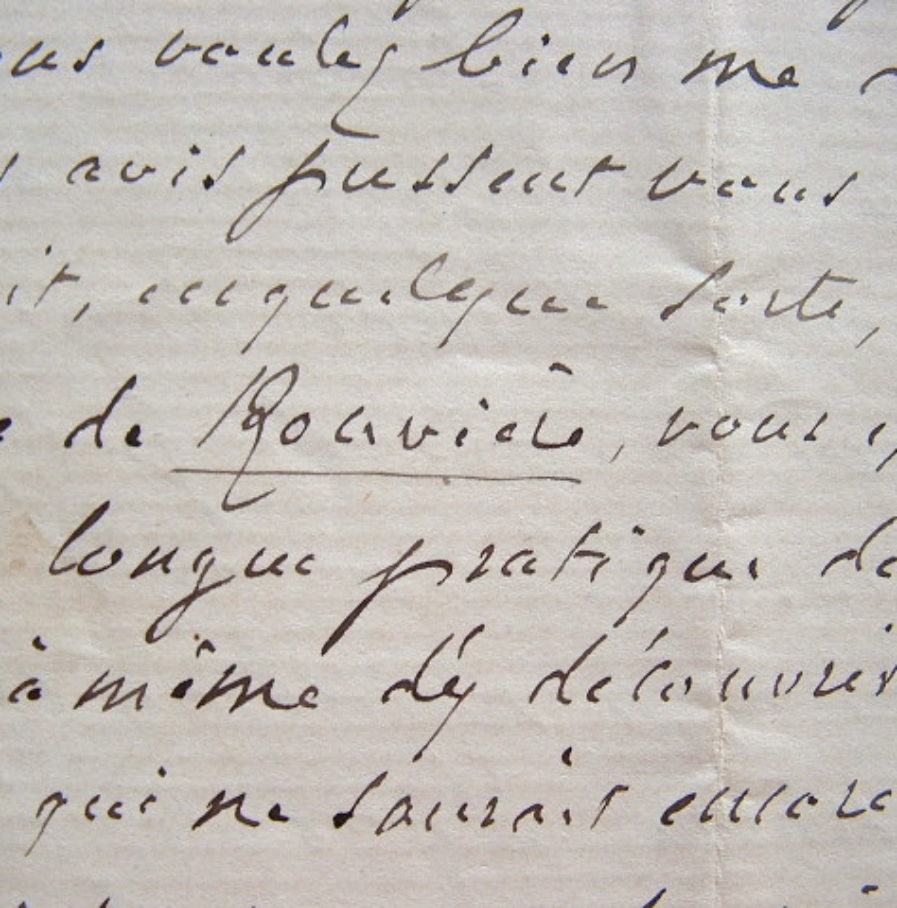 ous voulez bien me
avis pussent vous
it, en quelque sorte,
de Rouvière, vous
longue pratique de
à même d'y découvrir
qui ne saurait encore